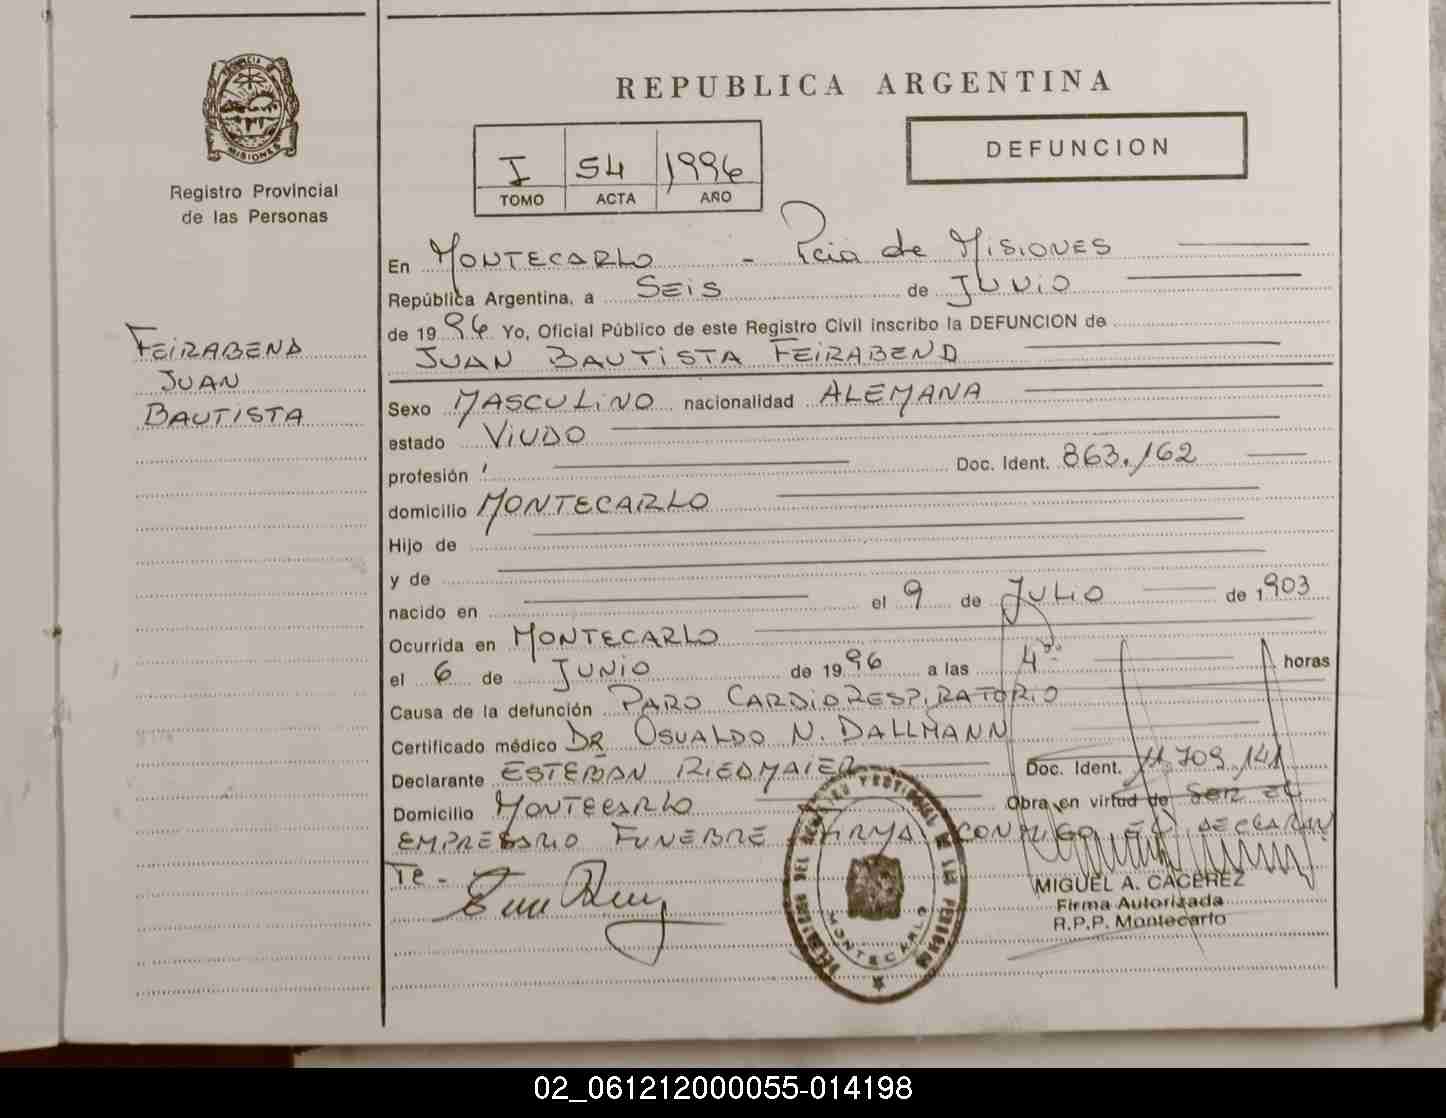 PROVINCIA DE
MISIONES
Registro Provincial
de las Personas
FEIRABEND
JUAN
BAUTISTA
REPUBLICA ARGENTINA
I 54 1996
TOMO ACTA AÑO
DEFUNCION
En MONTECARLO - Pcia de MISIONES
República Argentina, a SEIS de JUNIO
de 1996 Yo, Oficial Público de este Registro Civil inscribo la DEFUNCION de
JUAN BAUTISTA FEIRABEND
Sexo MASCULINO nacionalidad ALEMANA
estado VIUDO
profesión Doc. Ident. 863.162
domicilio MONTECARLO
Hijo de
y de
nacido en el 9 de JULIO de 1903
Ocurrida en MONTECARLO
el 6 de JUNIO de 1996 a las 4 horas
Causa de la defunción PARO CARDIORESPIRATORIO
Certificado médico DR OSUALDO N. DALLMANN
Declarante ESTEBAN RIEDMAIER Doc. Ident. 11.709.141
Domicilio MONTECARLO Obra en virtud de SER EL
EMPRESARIO FUNEBRE FIRMA CONMIGO EL DECLARAN
TE -
MONTECARLO
MIGUEL A. CACEREZ
Firma Autorizada
R.P.P. Montecarlo
02_061212000055-014198